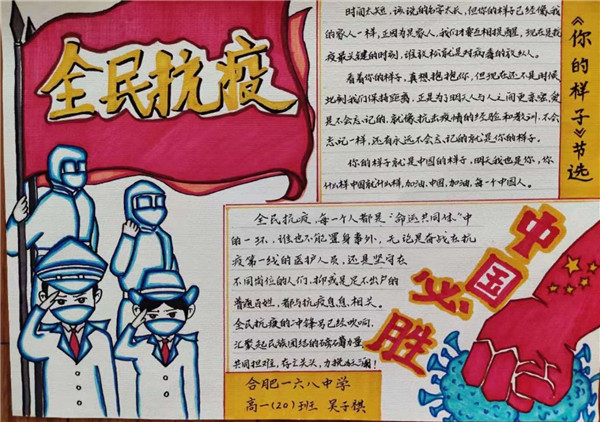 全民抗疫
时间太短,该说的名字太长,但你的样子已经像我
的家人一样,正因为是家人,我们才要互相提醒,现在是抗
疫最关键的时刻,谁放松就是对病毒的放纵人。
看着你的样子,真想抱抱你,但现在还不是时候
此刻我们保持距离,正是为了明天人与人之间更亲密,爱
是不会忘记的,就像抗击疫情的经验和教训,不会
忘记一样,还有永远不会忘记的就是你的样子。
你的样子就是中国的样子,明天我也是你,你
什么样中国就什么样,加油,中国,加油,每一个中国人。
《你的样子》节选
全民抗疫,每一个人都是“命运共同体”中
的一环,谁也不能置身事外,无论是奋战在抗
疫第一线的医护人员,还是坚守在
不同岗位的人们,抑或是足不出户的
普通百姓,都与抗疫息息相关。
全民抗疫的冲锋号已经吹响,
汇聚起民族团结的磅礴力量,
共同担难,存亡关头,力挽狂澜!
中国必胜
合肥一六八中学
高一(20)班 吴子祺